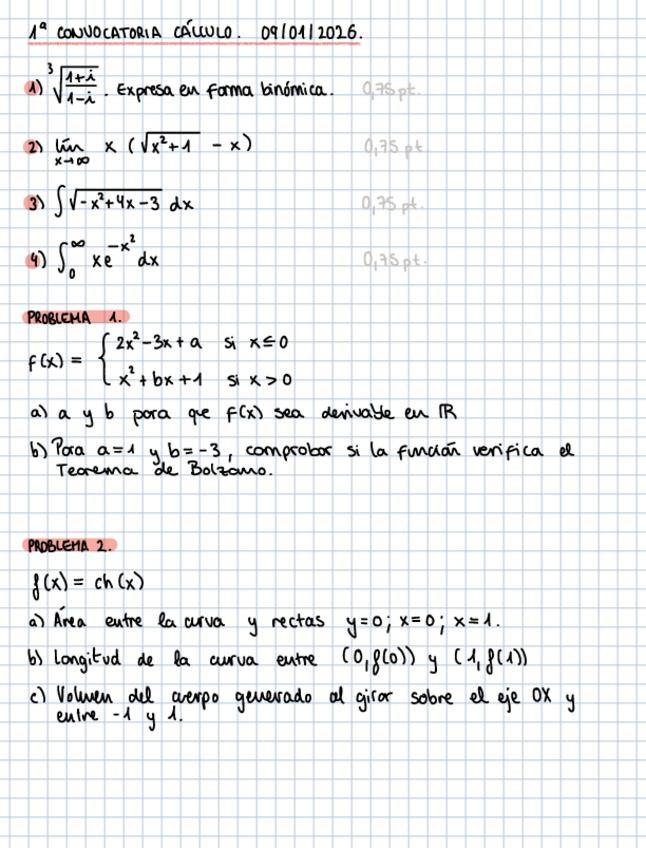 1ª CONVOCATORIA CÁLCULO. 09/01/2026.
1) ∛((1+i)/(1-i)). Expresa en forma binómica. 0,75 pt.
2) lím x→∞ x (√(x²+1) - x) 0,75 pt
3) ∫√(-x²+4x-3) dx 0,75 pt.
4) ∫₀^∞ xe^(-x²) dx 0,75 pt.
PROBLEMA 1.
f(x) = { 2x²-3x+a si x≤0
x²+bx+1 si x>0
a) a y b para que f(x) sea derivable en ℝ
b) Para a=1 y b=-3, comprobar si la función verifica el
Teorema de Bolzano.
PROBLEMA 2.
f(x) = ch(x)
a) Área entre la curva y rectas y=0; x=0; x=1.
b) Longitud de la curva entre (0,f(0)) y (1,f(1))
c) Volumen del cuerpo generado al girar sobre el eje OX y
entre -1 y 1.